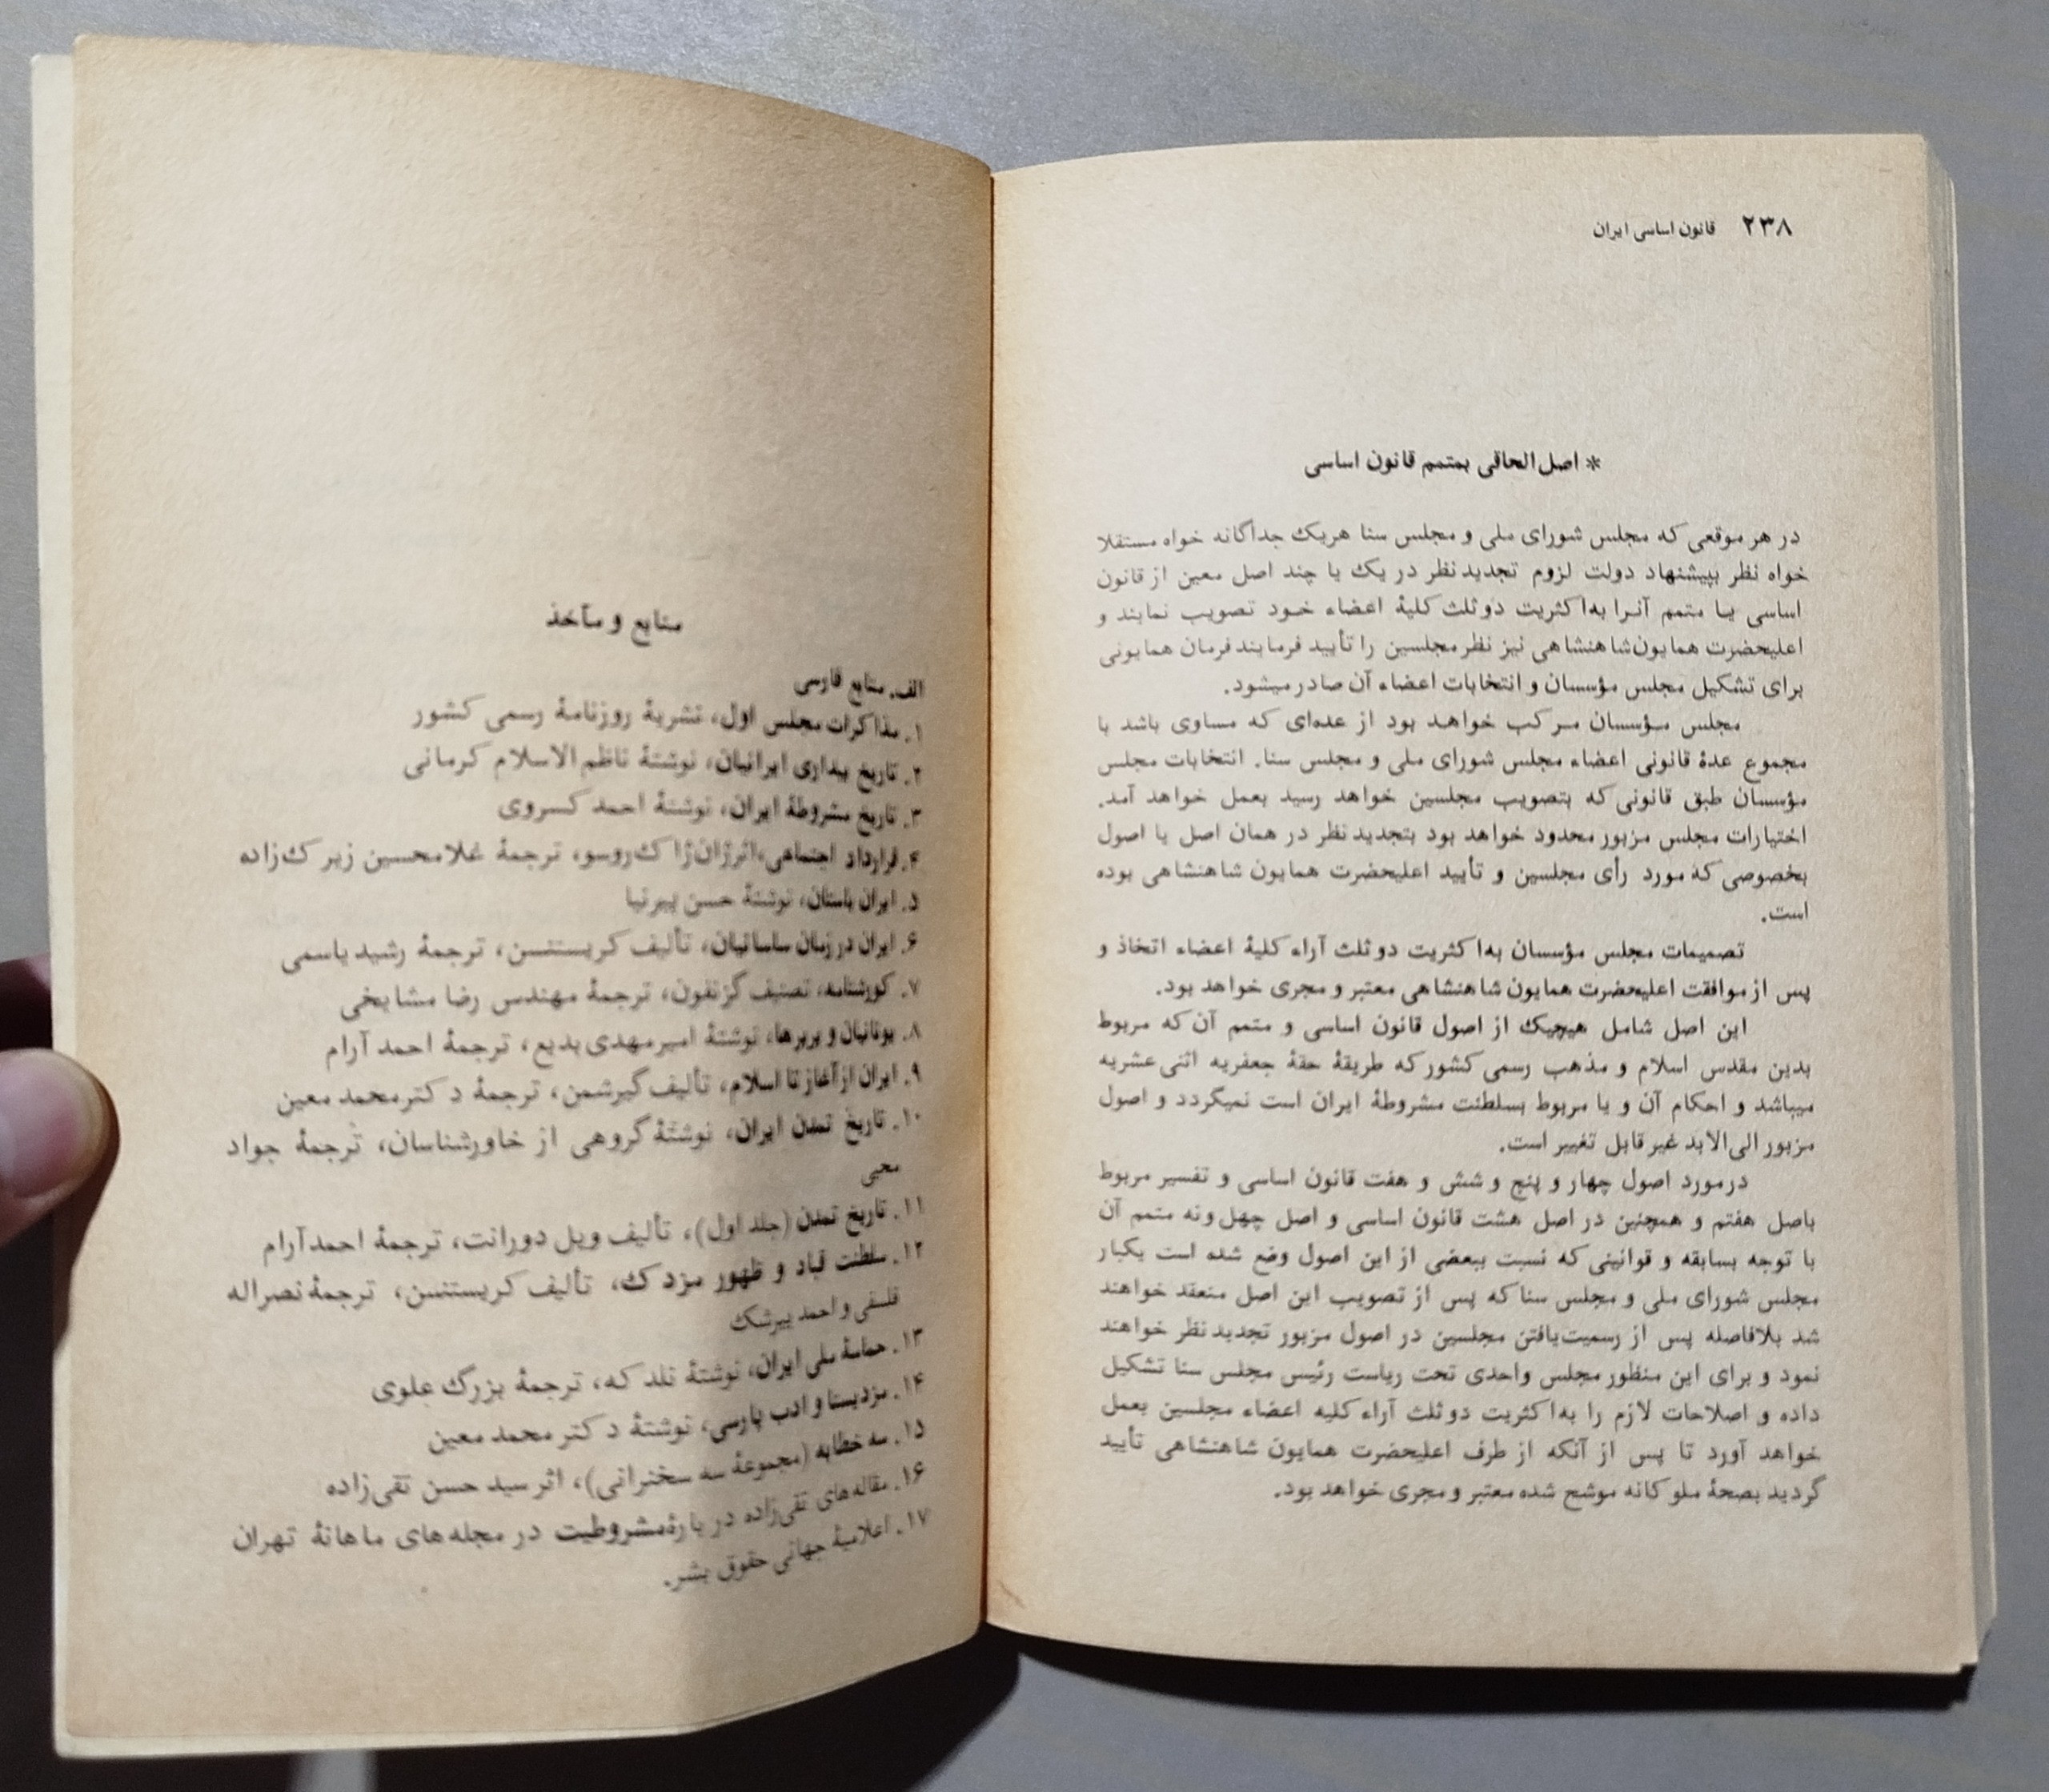 ۲۳۸ قانون اساسی ایران
* اصل الحاقی بمتمم قانون اساسی
در هر موقعی که مجلس شورای ملی و مجلس سنا هریک جداگانه خواه مستقلا
خواه نظر بپیشنهاد دولت لزوم تجدیدنظر در یک یا چند اصل معین از قانون
اساسی یا متمم آنرا به‌اکثریت دوثلث کلیهٔ اعضاء خود تصویب نمایند و
اعلیحضرت همایون‌شاهنشاهی نیز نظر مجلسین را تأیید فرمایند فرمان همایونی
برای تشکیل مجلس مؤسسان و انتخابات اعضاء آن صادر میشود.
مجلس مؤسسان مرکب خواهد بود از عده‌ای که مساوی باشد با
مجموع عدهٔ قانونی اعضاء مجلس شورای ملی و مجلس سنا. انتخابات مجلس
مؤسسان طبق قانونی که بتصویب مجلسین خواهد رسید بعمل خواهد آمد.
اختیارات مجلس مزبور محدود خواهد بود بتجدیدنظر در همان اصل یا اصول
بخصوصی که مورد رأی مجلسین و تأیید اعلیحضرت همایون شاهنشاهی بوده
است.
تصمیمات مجلس مؤسسان به‌اکثریت دوثلث آراء کلیهٔ اعضاء اتخاذ و
پس از موافقت اعلیحضرت همایون شاهنشاهی معتبر و مجری خواهد بود.
این اصل شامل هیچیک از اصول قانون اساسی و متمم آن که مربوط
بدین مقدس اسلام و مذهب رسمی کشور که طریقهٔ حقهٔ جعفریه اثنی‌عشریه
میباشد و احکام آن و یا مربوط بسلطنت مشروطهٔ ایران است نمیگردد و اصول
مزبور الی‌الابد غیرقابل تغییر است.
درمورد اصول چهار و پنج و شش و هفت قانون اساسی و تفسیر مربوط
باصل هفتم و همچنین در اصل هشت قانون اساسی و اصل چهل‌ونه متمم آن
با توجه بسابقه و قوانینی که نسبت ببعضی از این اصول وضع شده است یکبار
مجلس شورای ملی و مجلس سنا که پس از تصویب این اصل منعقد خواهند
شد بلافاصله پس از رسمیت‌یافتن مجلسین در اصول مزبور تجدیدنظر خواهند
نمود و برای این منظور مجلس واحدی تحت ریاست رئیس مجلس سنا تشکیل
داده و اصلاحات لازم را به‌اکثریت دوثلث آراء کلیه اعضاء مجلسین بعمل
خواهد آورد تا پس از آنکه از طرف اعلیحضرت همایون شاهنشاهی تأیید
گردید بصحهٔ ملوکانه موشح شده معتبر و مجری خواهد بود.
منابع و مآخذ
الف. منابع فارسی
۱. مذاکرات مجلس اول، نشریهٔ روزنامهٔ رسمی کشور
۲. تاریخ بیداری ایرانیان، نوشتهٔ ناظم‌الاسلام کرمانی
۳. تاریخ مشروطهٔ ایران، نوشتهٔ احمد کسروی
۴. قرارداد اجتماعی، اثر ژان‌ژاک‌روسو، ترجمهٔ غلامحسین زیرک‌زاده
۵. ایران باستان، نوشتهٔ حسن پیرنیا
۶. ایران درزمان ساسانیان، تألیف کریستنسن، ترجمهٔ رشیدیاسمی
۷. کورشنامه، تصنیف گزنفون، ترجمهٔ مهندس رضا مشایخی
۸. یونانیان و بربرها، نوشتهٔ امیرمهدی‌بدیع، ترجمهٔ احمد آرام
۹. ایران ازآغاز تا اسلام، تألیف گیرشمن، ترجمهٔ دکترمحمد معین
۱۰. تاریخ تمدن ایران، نوشتهٔ گروهی از خاورشناسان، ترجمهٔ جواد
محیی
۱۱. تاریخ تمدن (جلد اول)، تألیف ویل دورانت، ترجمهٔ احمدآرام
۱۲. سلطنت قباد و ظهور مزدک، تألیف کریستنسن، ترجمهٔ نصراله
فلسفی و احمد بیرشک
۱۳. حماسهٔ ملی ایران، نوشتهٔ نلدکه، ترجمهٔ بزرگ علوی
۱۴. مزدیسنا و ادب پارسی، نوشتهٔ دکترمحمد معین
۱۵. سه خطابه (مجموعهٔ سه سخنرانی)، اثر سید حسن تقی‌زاده
۱۶. مقاله‌های تقی‌زاده دربارهٔ مشروطیت در مجله‌های ماهانهٔ تهران
۱۷. اعلامیهٔ جهانی حقوق بشر.